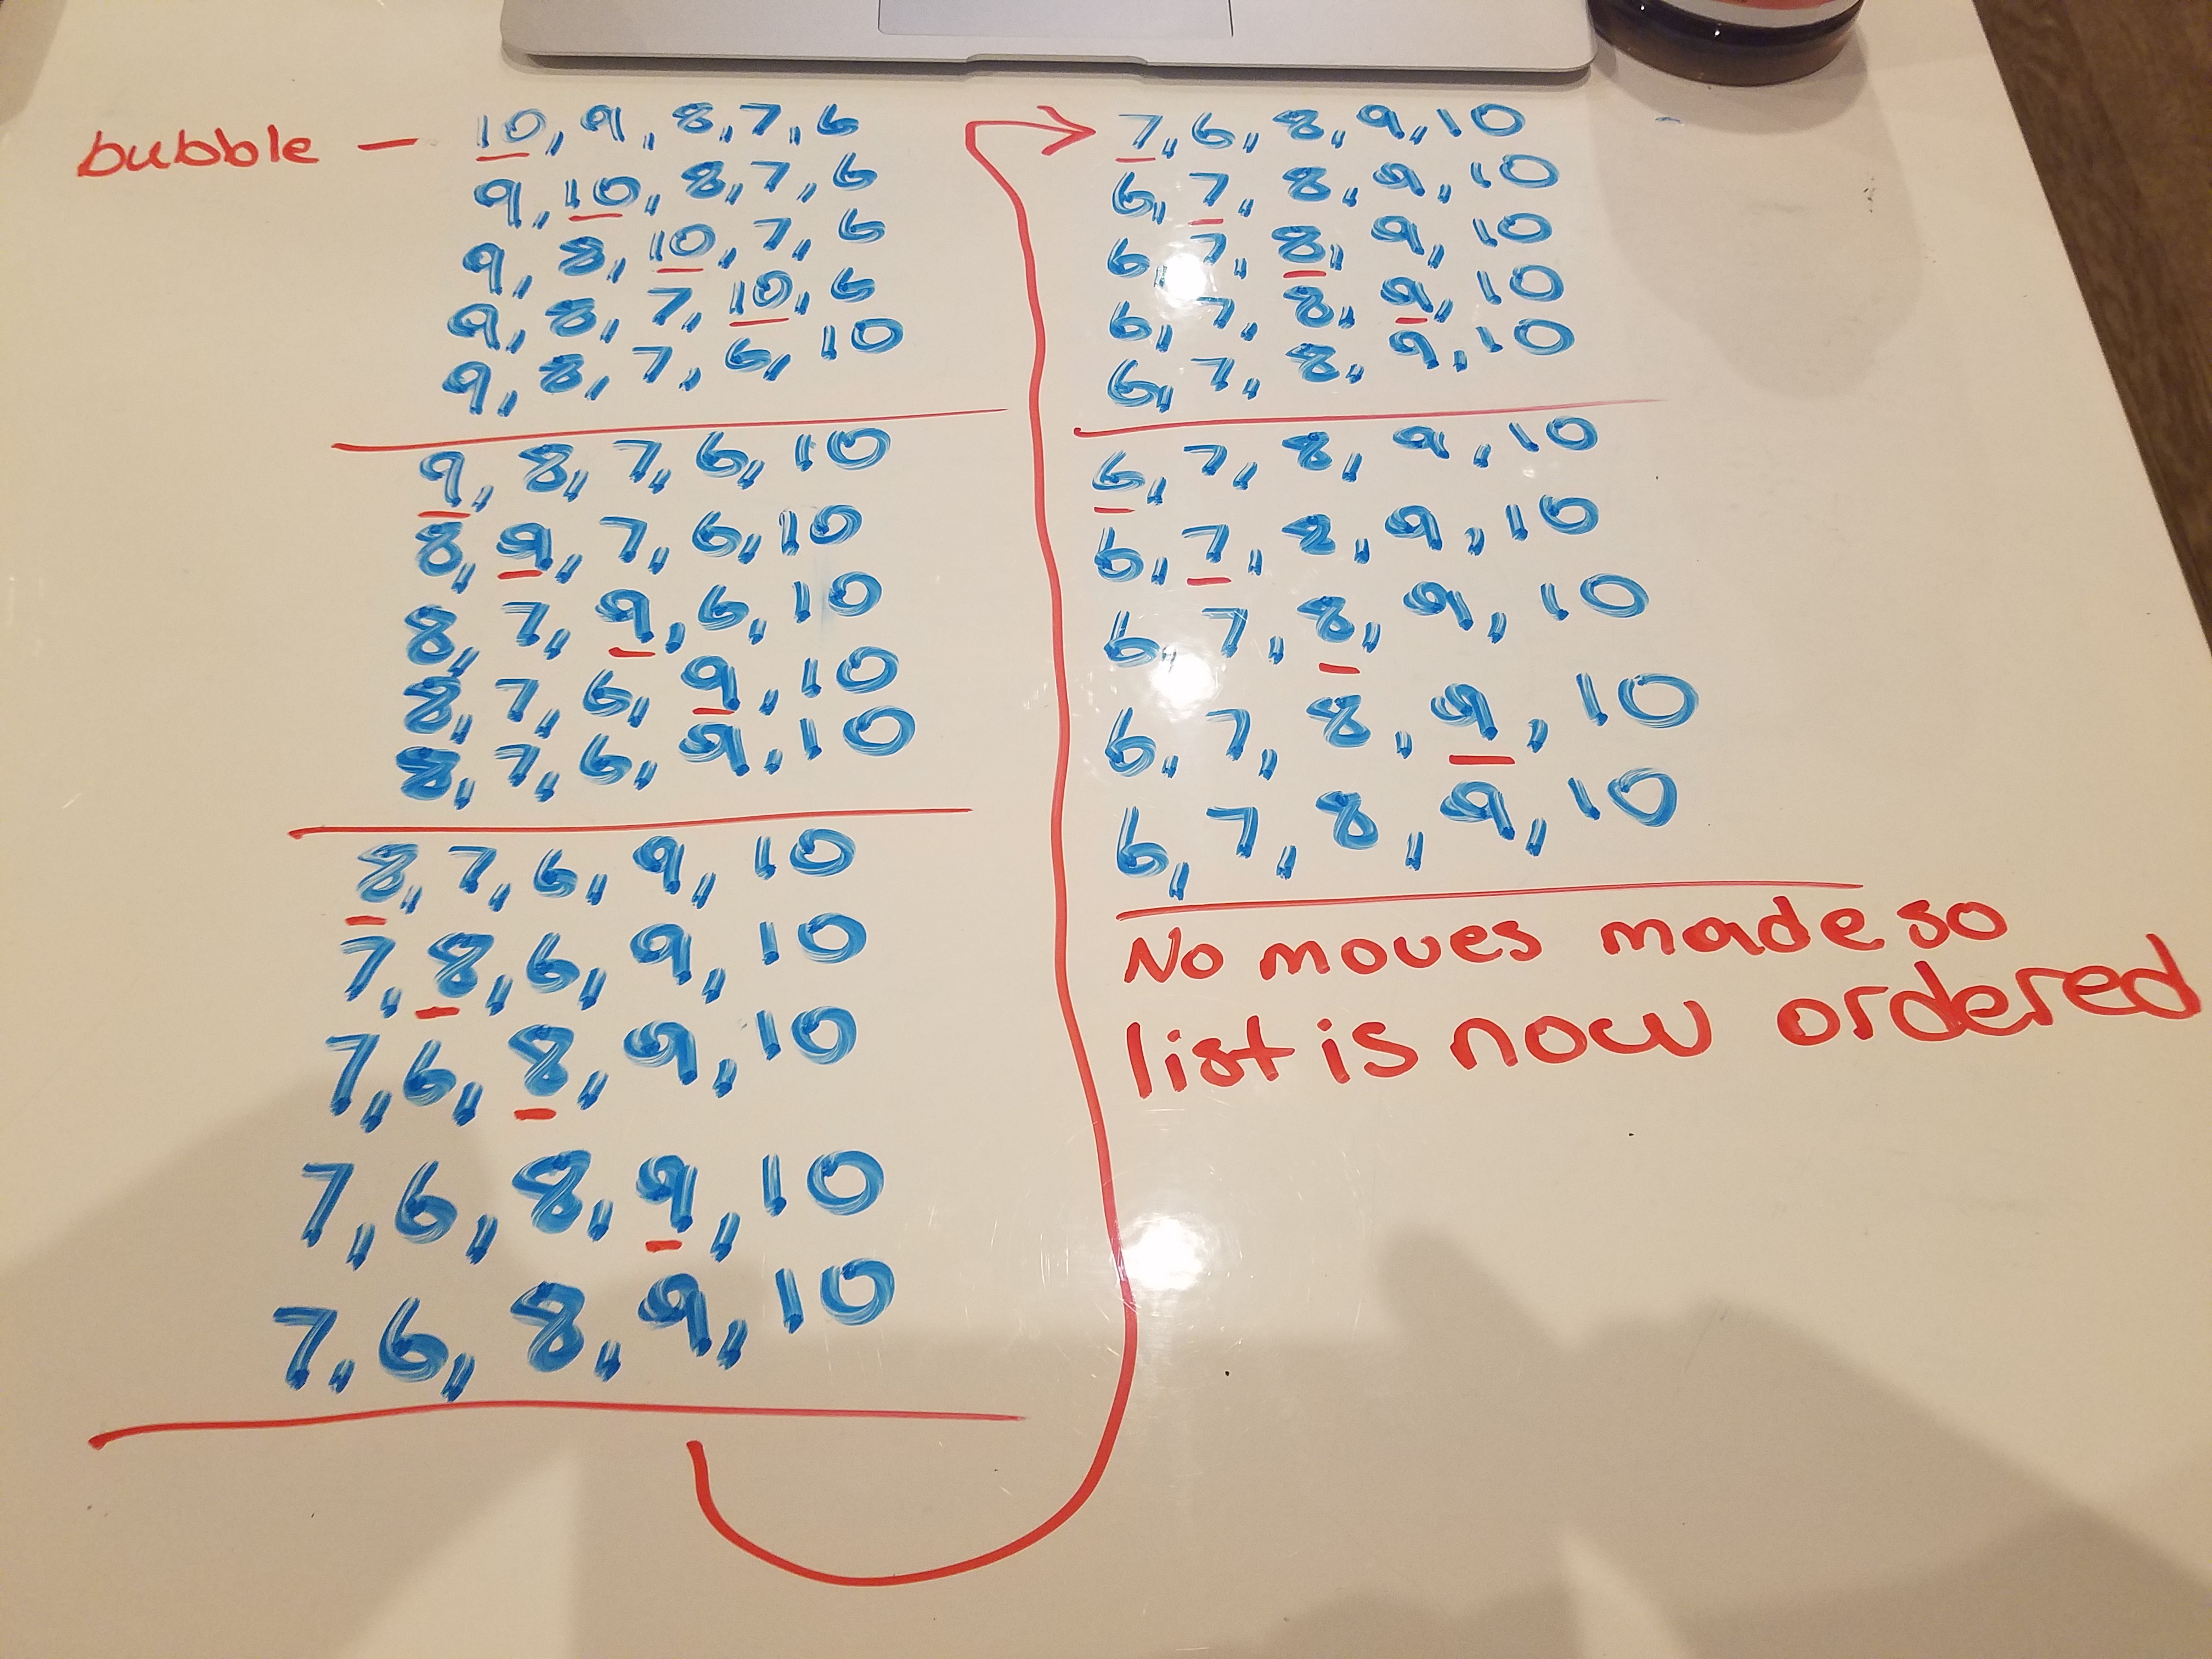 bubble — 10, 9, 8, 7, 6
9, 10, 8, 7, 6
9, 8, 10, 7, 6
9, 8, 7, 10, 6
9, 8, 7, 6, 10
9, 8, 7, 6, 10
8, 9, 7, 6, 10
8, 7, 9, 6, 10
8, 7, 6, 9, 10
8, 7, 6, 9, 10
8, 7, 6, 9, 10
7, 8, 6, 9, 10
7, 6, 8, 9, 10
7, 6, 8, 9, 10
7, 6, 8, 9, 10
7, 6, 8, 9, 10
6, 7, 8, 9, 10
6, 7, 8, 9, 10
6, 7, 8, 9, 10
6, 7, 8, 9, 10
6, 7, 8, 9, 10
6, 7, 8, 9, 10
6, 7, 8, 9, 10
6, 7, 8, 9, 10
6, 7, 8, 9, 10
No moves made so
list is now ordered